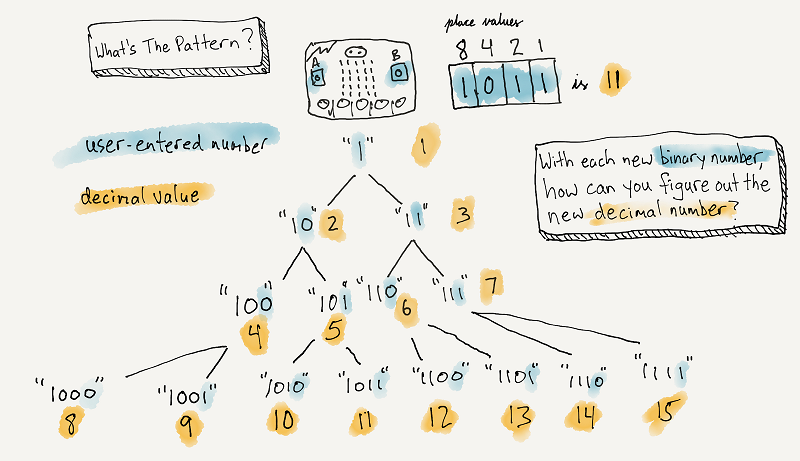 What's The Pattern?
A
B
place values
8 4 2 1
1 0 1 1 is 11
user-entered number
decimal value
"1" 1
With each new binary number,
how can you figure out the
new decimal number?
"10" 2 "11" 3
"100" "101" "110" "111" 7
4 5 6
"1000" "1001" "1010" "1011" "1100" "1101" "1110" "1111"
8 9 10 11 12 13 14 15